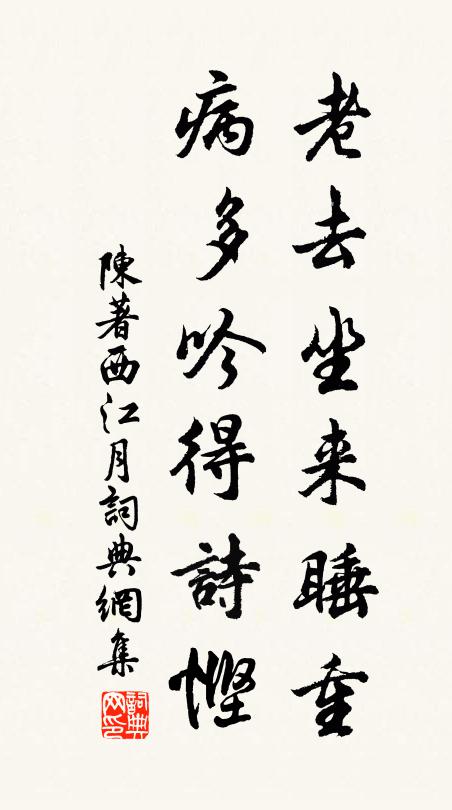 老去坐来睡重
病多吟得詩慳
陳著西江月詞典網集
詞典网印